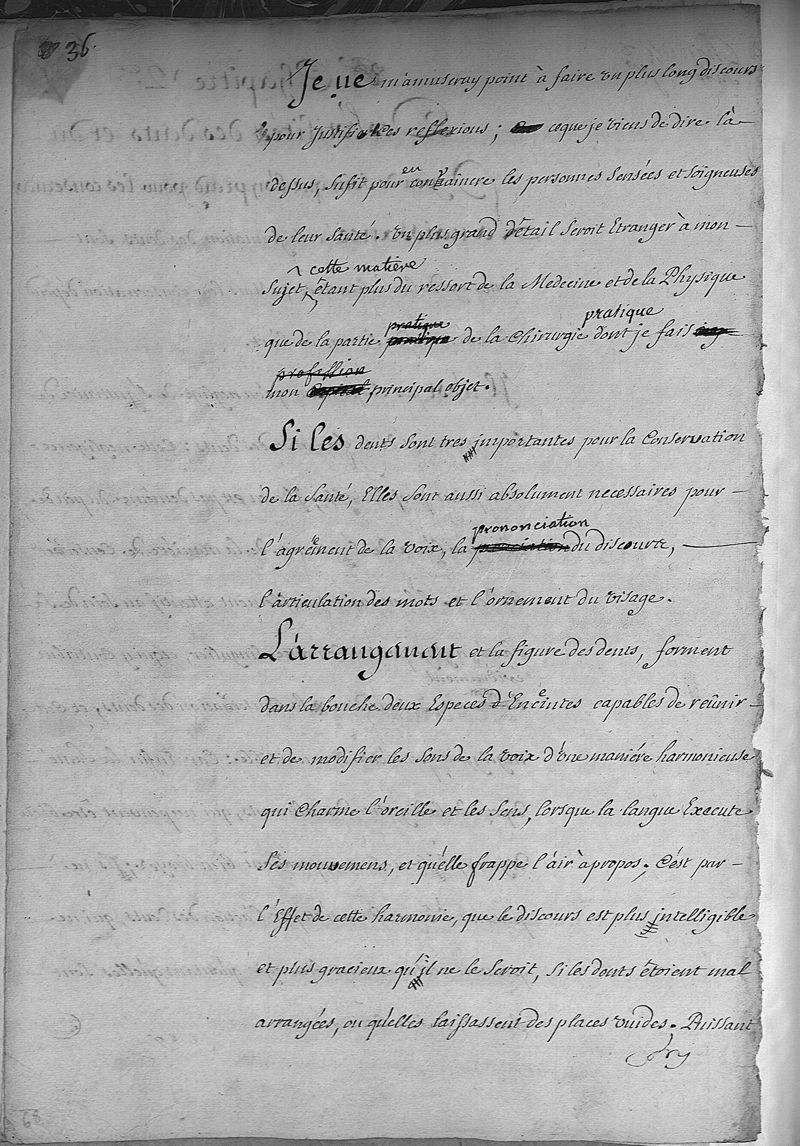 36.
Je ne m'amuseray point à faire un plus long discours
pour Justifier ces reflexions; ce que je viens de dire là-
dessus, sufit pour en convaincre les personnes sensées et soigneuses
de leur santé. Un plus grand détail seroit Etranger à mon
cette matière
sujet, étant plus du ressort de la Medecine et de la Physique
pratique pratique
que de la partie de la Chirurgie dont je fais
profession
mon principal objet.
Si les dents sont tres importantes pour la Conservation
de la Santé, Elles sont aussi absolument necessaires pour
prononciation
l'agréement de la voix, la du discours,
l'articulation des mots et l'ornement du visage.
L'arrangement et la figure des dents, forment
dans la bouche deux Especes d'Enceintes capables de reünir
et de modifier les sons de la voix d'une maniére harmonieuse
qui Charme l'oreille et les sens, lorsque la langue Execute
ses mouvemens, et qu'elle frappe l'air à propos. C'est par
l'Effet de cette harmonie, que le discours est plus intelligible
et plus gracieux qu'il ne le seroit, si les dents étoient mal
arrangées, ou qu'elles laissassent des places vuides. Puissant